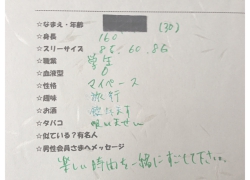 ☆なまえ・年齢 (30)
☆身長 160
☆スリーサイズ 86.60.86
☆職業 学生
☆血液型 O
☆性格 マイペース
☆趣味 旅行
☆お酒 飲みます
☆タバコ 吸いません
☆似ている?有名人
☆男性会員さまへメッセージ
楽しい時間を一緒にすごして下さい。